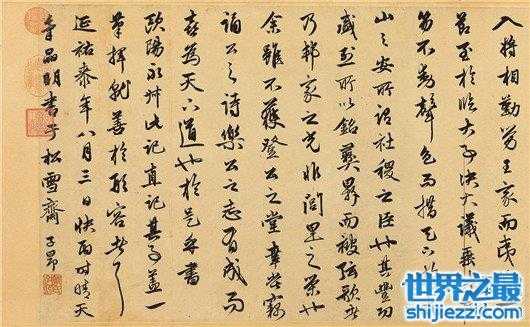 入將相勤勞王家而夷
節至於臨大事決大議垂
笏不動聲色而措天下
山之安所謂社稷之臣也其豐功
盛烈所以銘彝鼎而被弦歌者
乃邦家之光非閭里之榮也
余雖不獲登公之堂幸嘗竊
誦公之詩樂公之志有成而
喜為天下道也於是乎書
歐陽永叔此記真記其
筆揮就善於形容者
延祐泰年八月三日快雨時晴天
明書于松雪齋 子昂
世界之最
shijiezzi.com